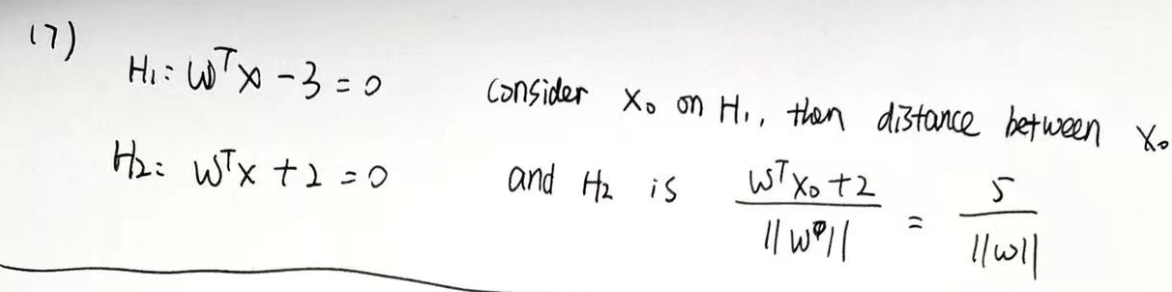 17)
H₁: wᵀx - 3 = 0
H₂: wᵀx + 2 = 0
consider x₀ on H₁, then distance between x₀
and H₂ is (wᵀx₀+2)/||w|| = 5/||w||